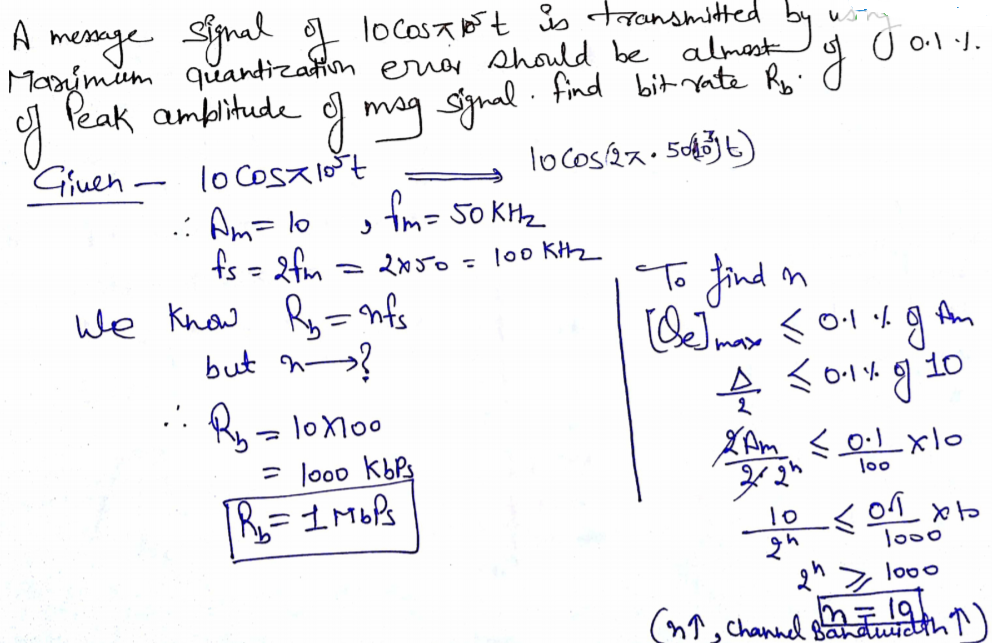 A message signal of 10cosπ10⁵t is transmitted by using
Maximum quantization error should be almost of 0.1%.
of Peak amplitude of msg signal. find bit-rate R_b.
Given — 10cosπ10⁵t ⟹ 10cos(2π·50(10³)t)
∴ Am = 10 , fm = 50 KHz
fs = 2fm = 2×50 = 100 KHz
We know R_b = nfs
but n → ?
∴ R_b = 10×100
= 1000 Kbps
R_b = 1 Mbps
To find n
[Qe]max ≤ 0.1% of Am
Δ/2 ≤ 0.1% of 10
2Am/2·2ⁿ ≤ 0.1/100 × 10
10/2ⁿ ≤ /1000 × 10
2ⁿ ≥ 1000
n = 10
(n↑, channel Bandwidth ↑)